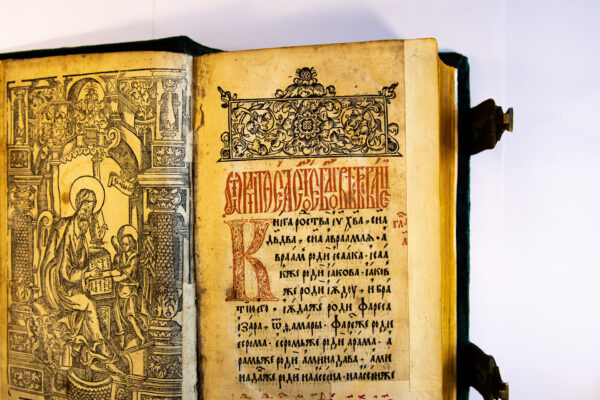 2
Книга роства іѵ҃ хв҃а, сн҃а
дв҃да, сн҃а авраамлѧ. а
враам роди ісаака. ісаа
кже роди іакова. іаков
же роди іюдѹ, и бра
тїю его. іюдаже роди фареса
ізара, ѿ ѳамары. фаресже роди
есрома. есромже роди арама. а
рамьже роди аминадава. ами
надавже роди наассона. наассонже